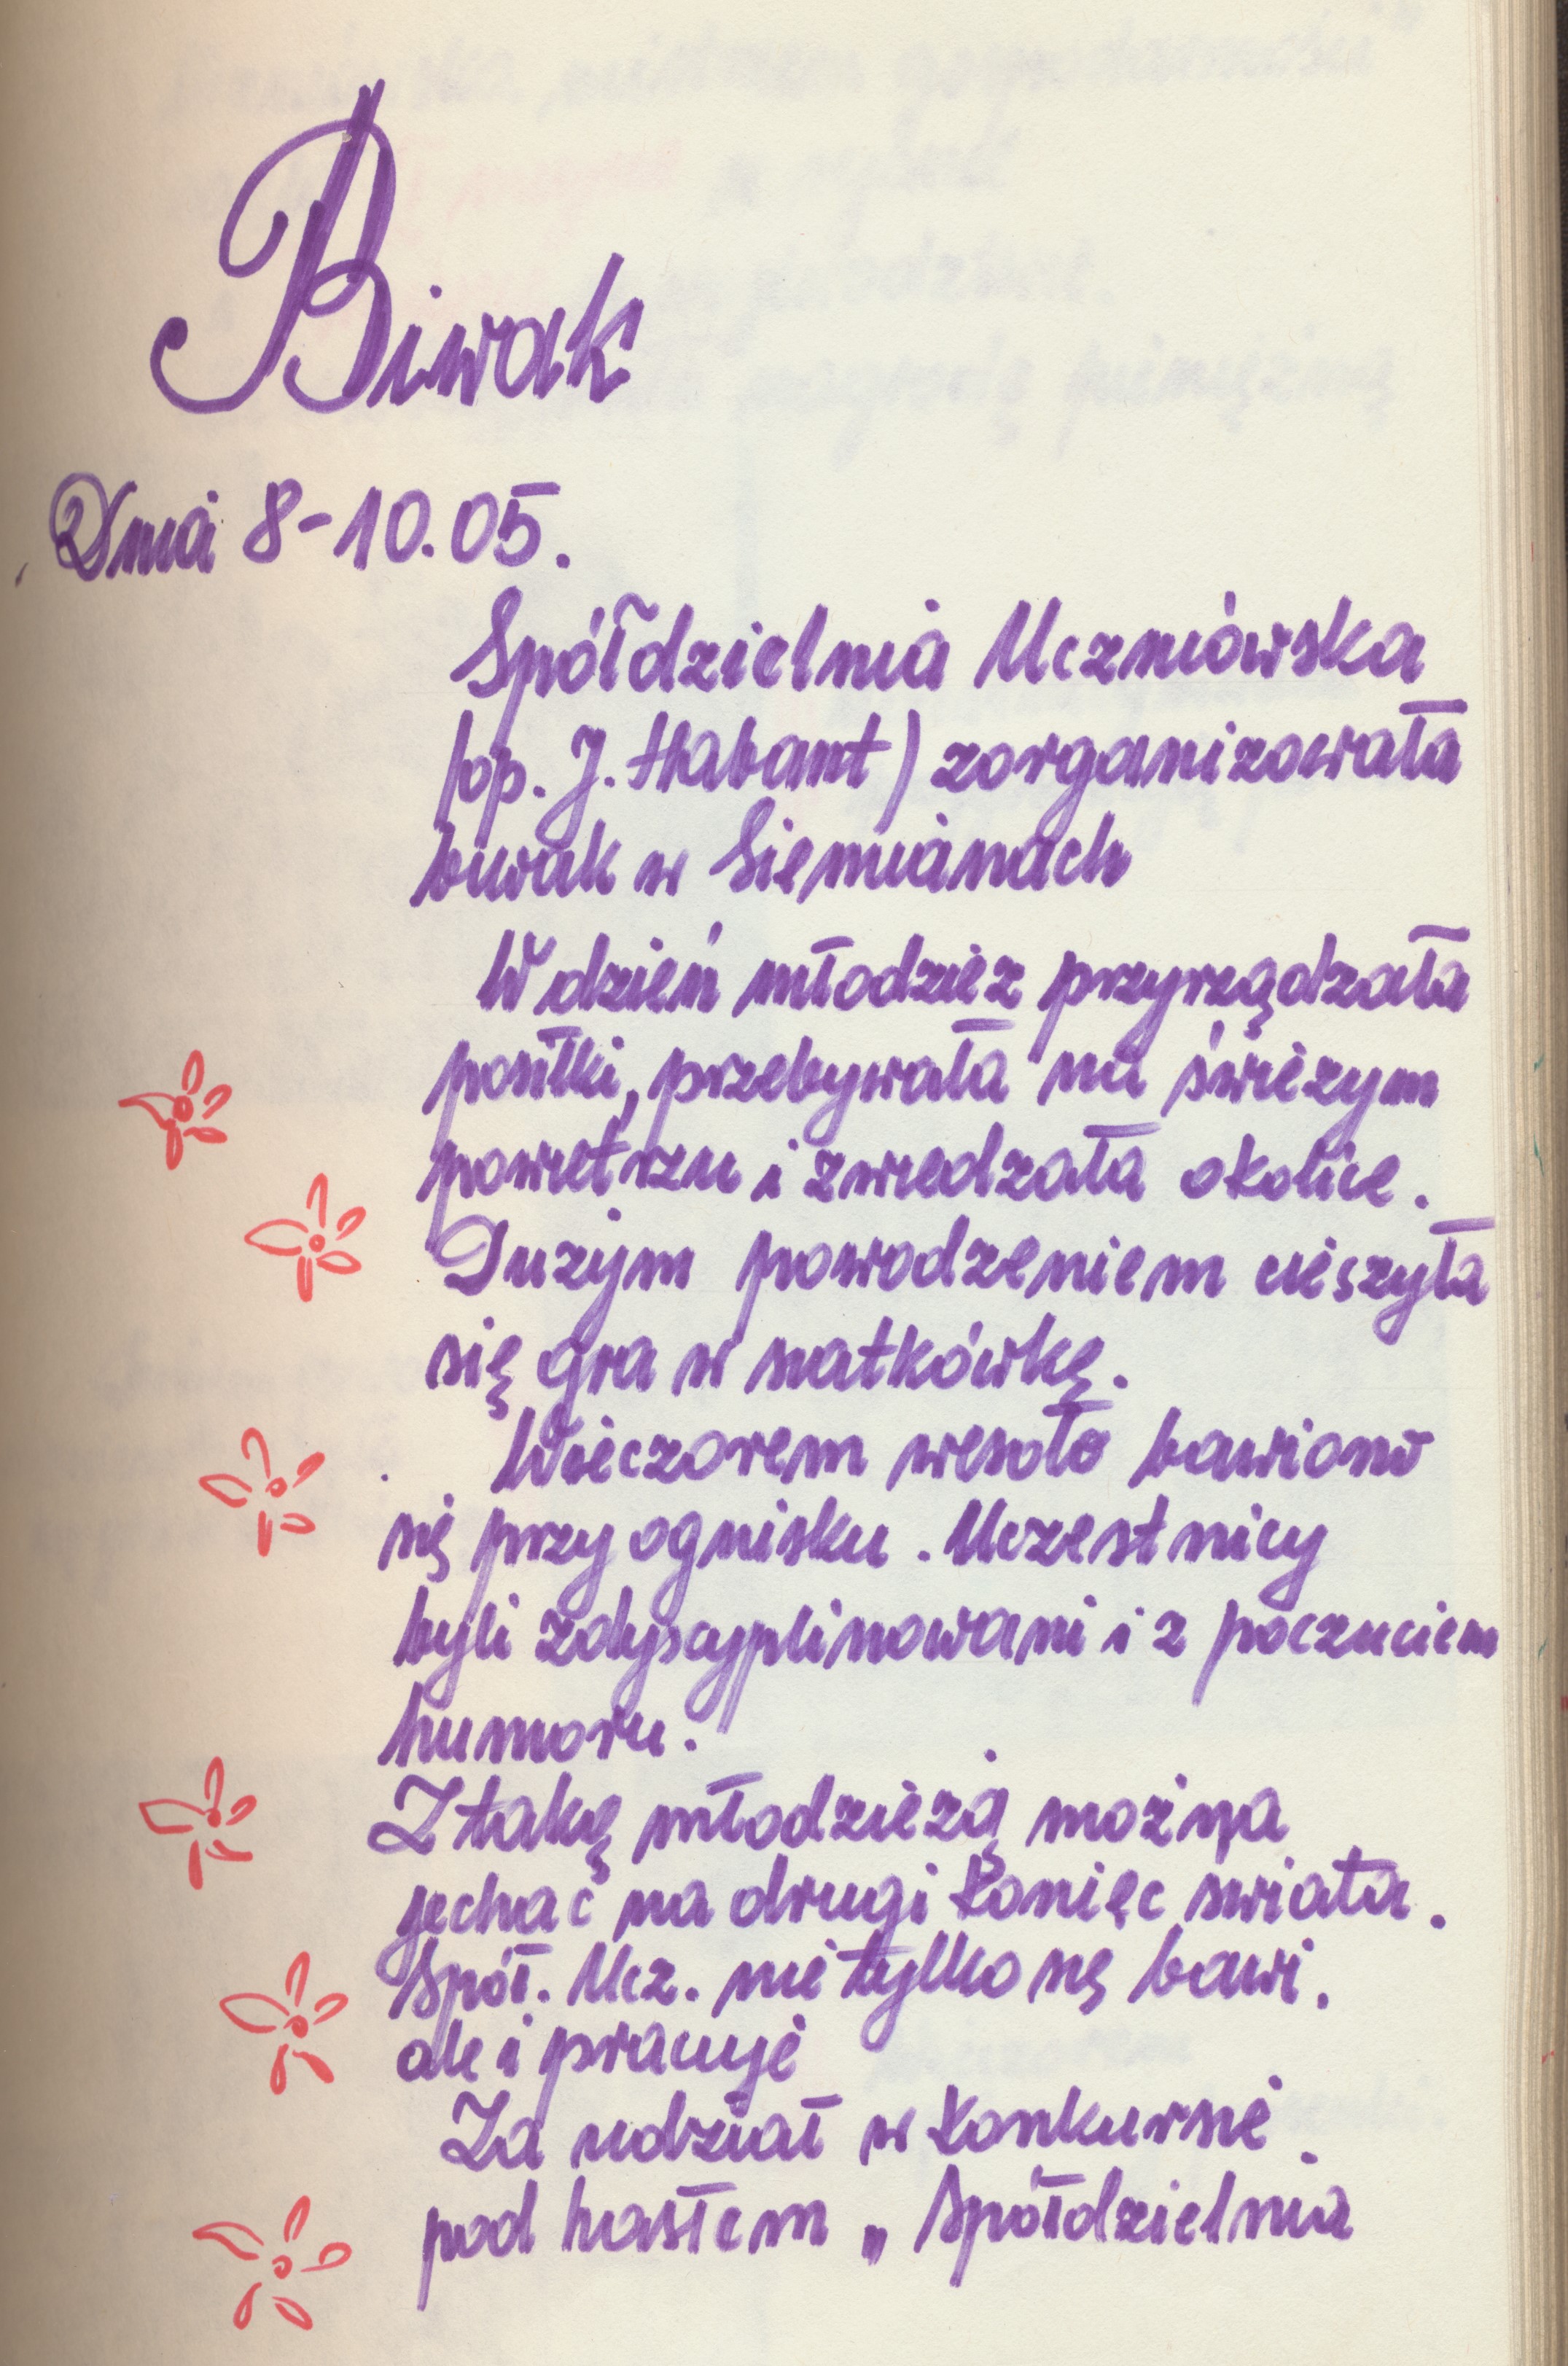 Biwak
Dnia 8-10.05.
Spółdzielnia Uczniówska
(op. J. Habant) zorganizowała
biwak w Siemianach
W dzień młodzież przyrządzała
posiłki, przebywała na świeżym
powietrzu i zwiedzała okolice.
Dużym powodzeniem cieszyła
się gra w siatkówkę.
Wieczorem wesoło bawiono
się przy ognisku. Uczestnicy
byli zdyscyplinowani i z poczuciem
humoru.
Z taką młodzieżą można
jechać na drugi koniec świata.
Spół. Ucz. nie tylko się bawi,
ale i pracuje
Za udział w konkursie
pod hasłem „Spółdzielnia